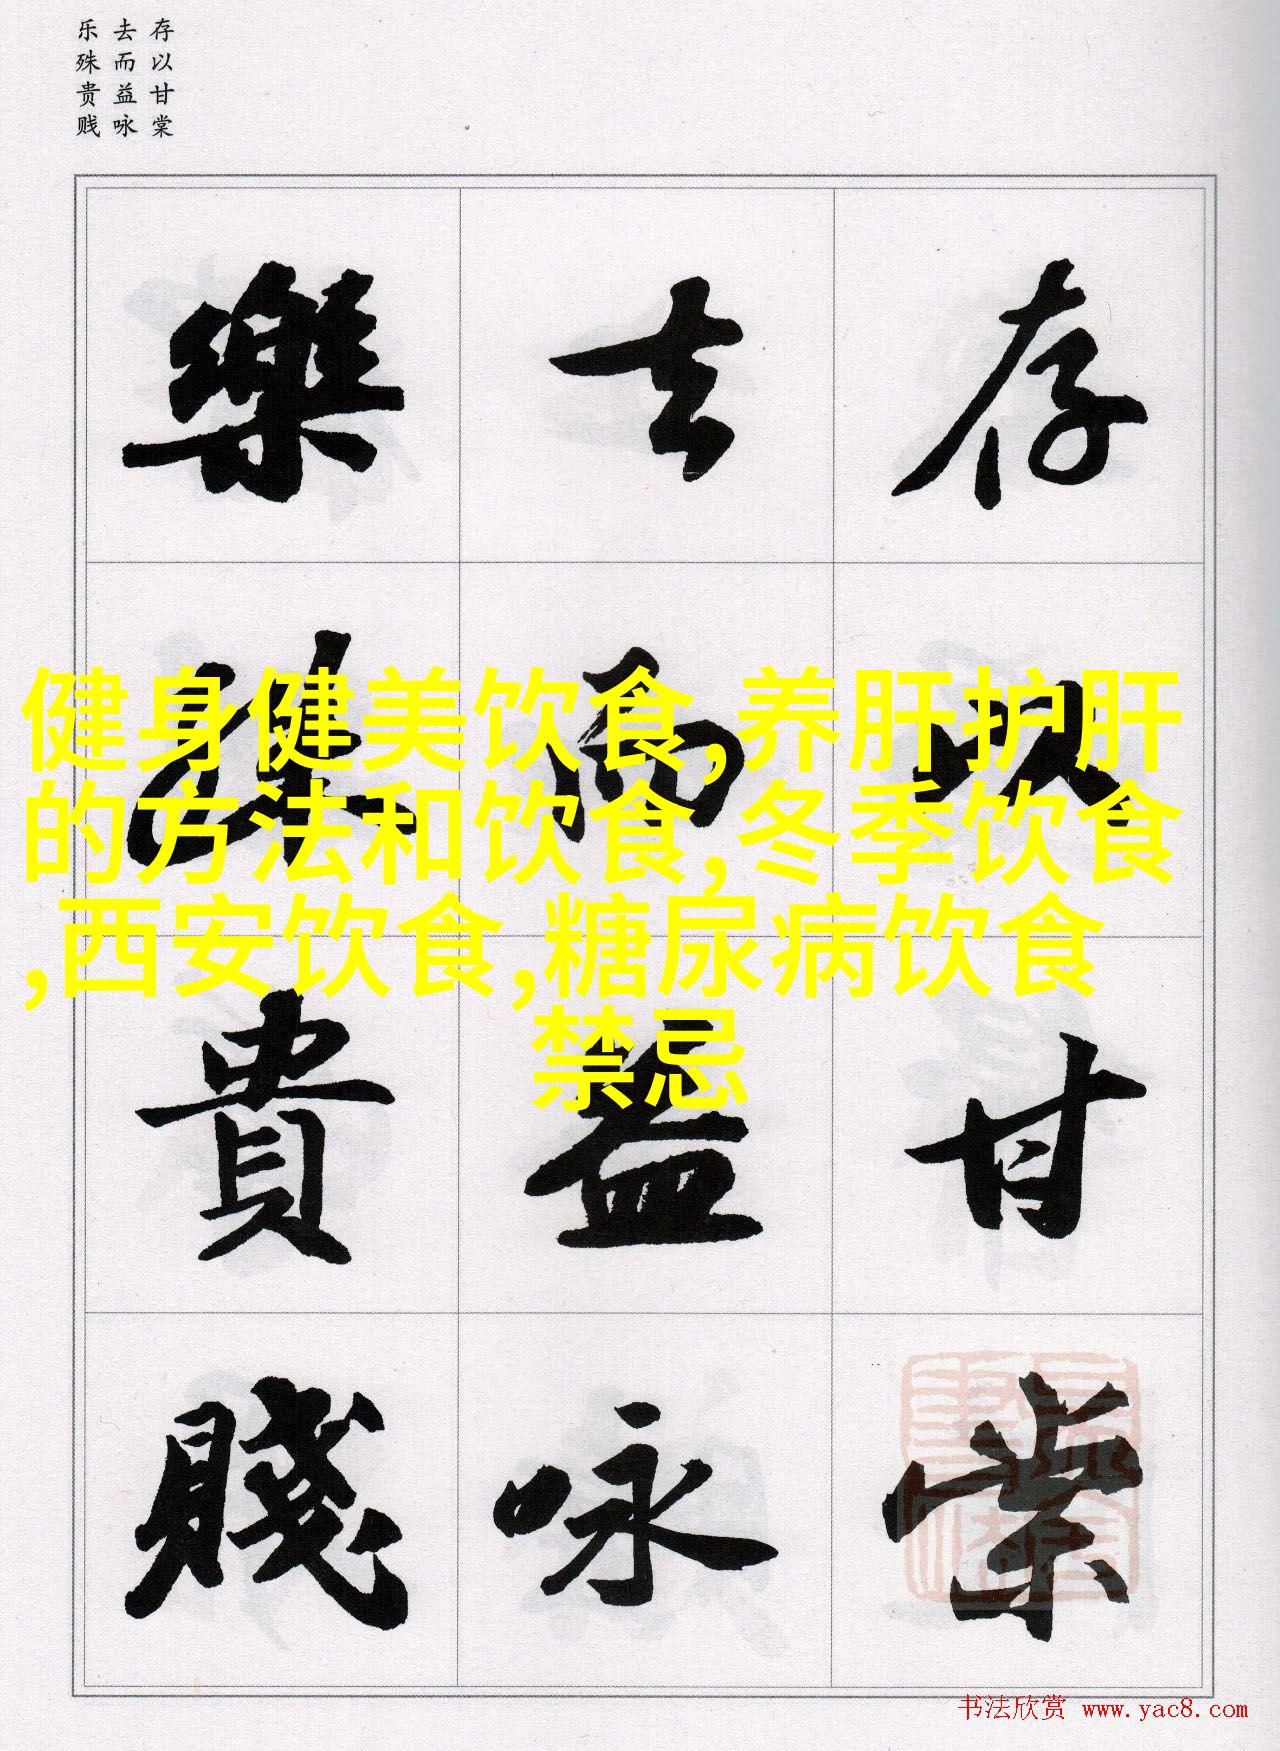 存以甘棠
去而益咏
乐殊贵贱
存以甘棠
去而益咏
樂殊貴賤
健身健美饮食,养肝护肝
的方法和饮食,冬季饮食
,西安饮食,糖尿病饮食
禁忌
书法欣赏 www.yac8.com